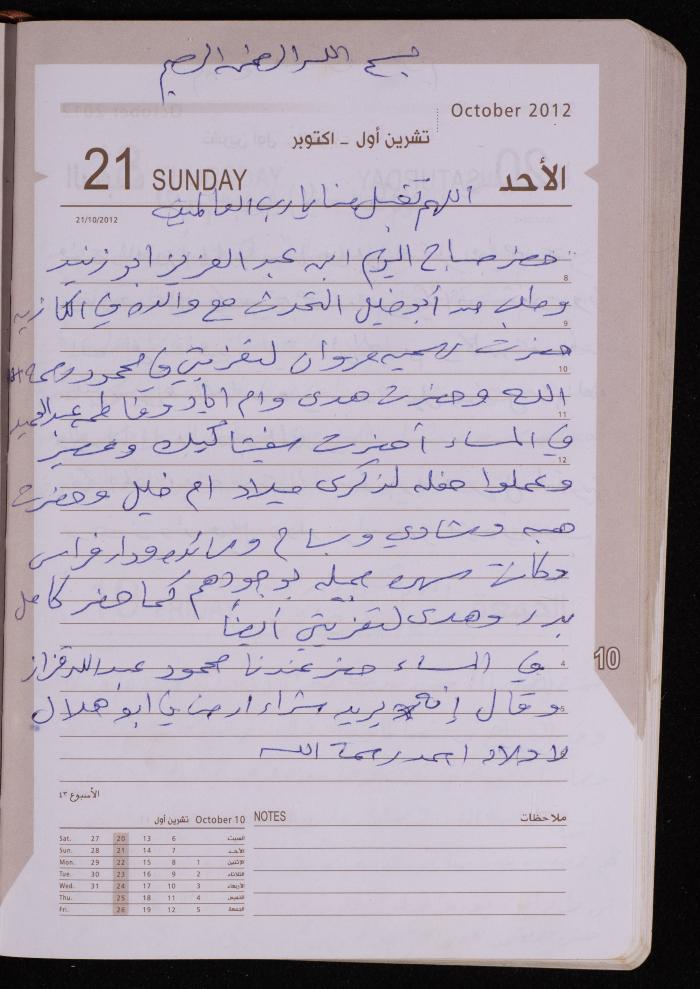 بسم الله الرحمن الرحيم
October 2012
تشرين أول - اكتوبر
21 SUNDAY الأحد
اللهم تقبل منا يا رب العالمين
21/10/2012
حضر صباح اليوم ابن عبد العزيز ابو زنيد
8
وطلب من أبو خليل التحدث مع والده في الكازيه
9
حضرت سميه مروان لتعزيتي في محمود رحمه
10
الله وحضرت هدى وام اياد وفاطمه عبد الحميد
11
في المساء أحضرت كيك وعصير
12
وعملوا حفله لذكرى ميلاد ام خليل وحضرت
هبه وشادي وسماح ومائده ودار فراس
وكانت سهره جميله بوجودهم كما حضر كامل
بدر وهدى لتعزيتي أيضاً
في المساء حضر عندنا محمود عبد الله قزاز
4
10
وقال إنه يريد شراء ارض في ابو هلال
5
لاولاد احمد رحمة الله
الأسبوع ٤٣
October 10 تشرين أول
Sat. 27 20 13 6 السبت
Sun. 28 21 14 7 الأحد
Mon. 29 22 15 8 1 الإثنين
Tue. 30 23 16 9 2 الثلاثاء
Wed. 31 24 17 10 3 الأربعاء
Thu. 25 18 11 4 الخميس
Fri. 26 19 12 5 الجمعة
NOTES ملاحظات